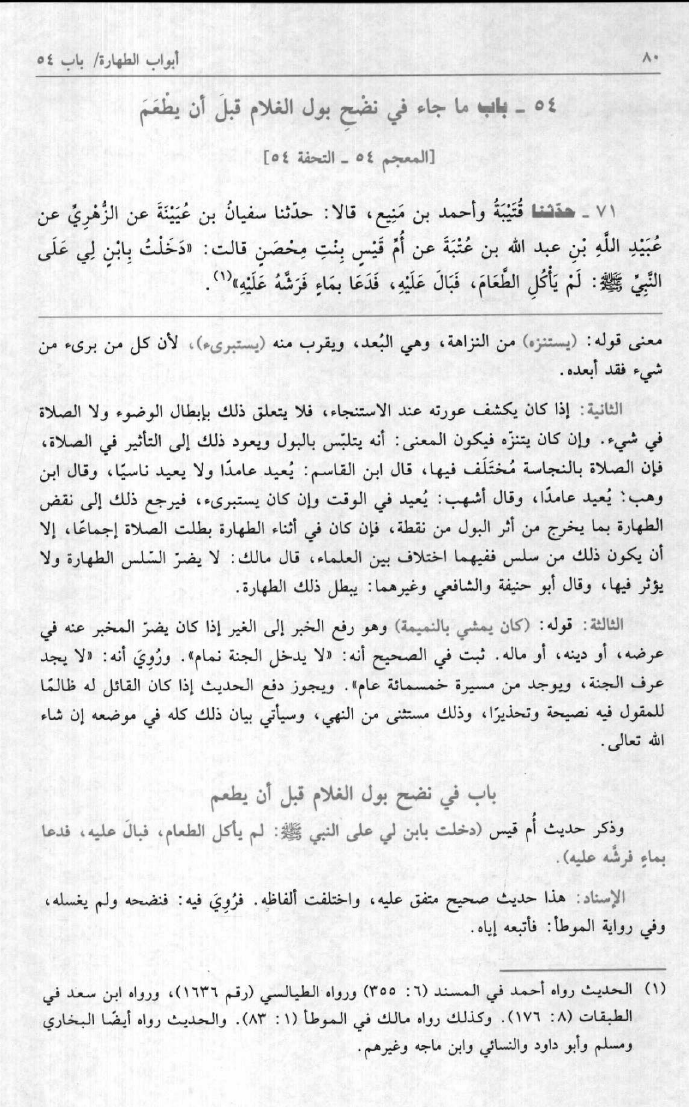 ٨٠ أبواب الطهارة/ باب ٥٤
٥٤ ـ باب ما جاء في نضْحِ بول الغلام قبلَ أن يطْعَمَ
[المعجم ٥٤ ـ التحفة ٥٤]
٧١ ـ حدّثنا قُتَيْبَةُ وأحمد بن مَنِيع، قالا: حدّثنا سفيانُ بن عُيَيْنَةَ عن الزُّهْرِيِّ عن
عُبَيْدِ اللَّهِ بْنِ عبد الله بن عُتْبَةَ عن أُمِّ قَيْسٍ بِنْتِ مِحْصَنٍ قالت: «دَخَلْتُ بِابْنٍ لِي عَلَى
النَّبِيِّ ﷺ: لَمْ يَأْكُلِ الطَّعَامَ، فَبَالَ عَلَيْهِ، فَدَعَا بمَاءٍ فَرَشَّهُ عَلَيْهِ»(١).
معنى قوله: (يستنزه) من النزاهة، وهي البُعد، ويقرب منه (يستبرىء)، لأن كل من برىء من
شيء فقد أبعده.
الثانية: إذا كان يكشف عورته عند الاستنجاء، فلا يتعلق ذلك بإبطال الوضوء ولا الصلاة
في شيء. وإن كان يتنزّه فيكون المعنى: أنه يتلبّس بالبول ويعود ذلك إلى التأثير في الصلاة،
فإن الصلاة بالنجاسة مُختَلَف فيها، قال ابن القاسم: يُعيد عامدًا ولا يعيد ناسيًا، وقال ابن
وهب: يُعيد عامدًا، وقال أشهب: يُعيد في الوقت وإن كان يستبرىء، فيرجع ذلك إلى نقض
الطهارة بما يخرج من أثر البول من نقطة، فإن كان في أثناء الطهارة بطلت الصلاة إجماعًا، إلا
أن يكون ذلك من سلس ففيهما اختلاف بين العلماء، قال مالك: لا يضرّ السّلس الطهارة ولا
يؤثر فيها، وقال أبو حنيفة والشافعي وغيرهما: يبطل ذلك الطهارة.
الثالثة: قوله: (كان يمشي بالنميمة) وهو رفع الخبر إلى الغير إذا كان يضرّ المخبر عنه في
عرضه، أو دينه، أو ماله. ثبت في الصحيح أنه: «لا يدخل الجنة نمام». ورُوِيَ أنه: «لا يجد
عرف الجنة، ويوجد من مسيرة خمسمائة عام». ويجوز دفع الحديث إذا كان القائل له ظالمًا
للمقول فيه نصيحة وتحذيرًا، وذلك مستثنى من النهي، وسيأتي بيان ذلك كله في موضعه إن شاء
الله تعالى.
باب في نضح بول الغلام قبل أن يطعم
وذكر حديث أُم قيس (دخلت بابن لي على النبي ﷺ: لم يأكل الطعام، فبالَ عليه، فدعا
بماءٍ فرشَّه عليه).
الإسناد: هذا حديث صحيح متفق عليه، واختلفت ألفاظه. فرُوِيَ فيه: فنضحه ولم يغسله،
وفي رواية الموطأ: فأتبعه إياه.
(١) الحديث رواه أحمد في المسند (٦: ٣٥٥) ورواه الطيالسي (رقم ١٦٣٦)، ورواه ابن سعد في
الطبقات (٨: ١٧٦). وكذلك رواه مالك في الموطأ (١: ٨٣). والحديث رواه أيضًا البخاري
ومسلم وأبو داود والنسائي وابن ماجه وغيرهم.